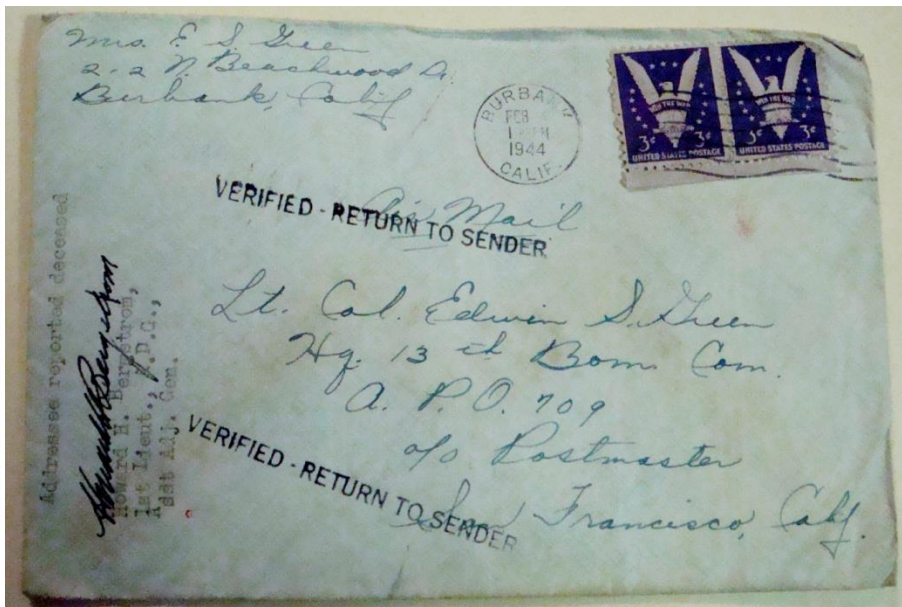 Mrs. E S Green
2-2 N. Beachwood Dr.
Burbank, Calif
BURBANK
FEB
1 PM
1944
CALIF.
WIN THE WAR
3¢ 3¢
UNITED STATES POSTAGE
WIN THE WAR
3¢ 3¢
UNITED STATES POSTAGE
Air Mail
VERIFIED - RETURN TO SENDER
Lt. Col. Edwin S. Green
Hq. 13th Bom. Com.
A. P. O. 709
c/o Postmaster
San Francisco, Calif.
VERIFIED - RETURN TO SENDER
Addressee reported deceased
Howard H. Bergstrom
Howard H. Bergstrom,
1st Lieut., A.G.D.,
Asst Adj. Gen.